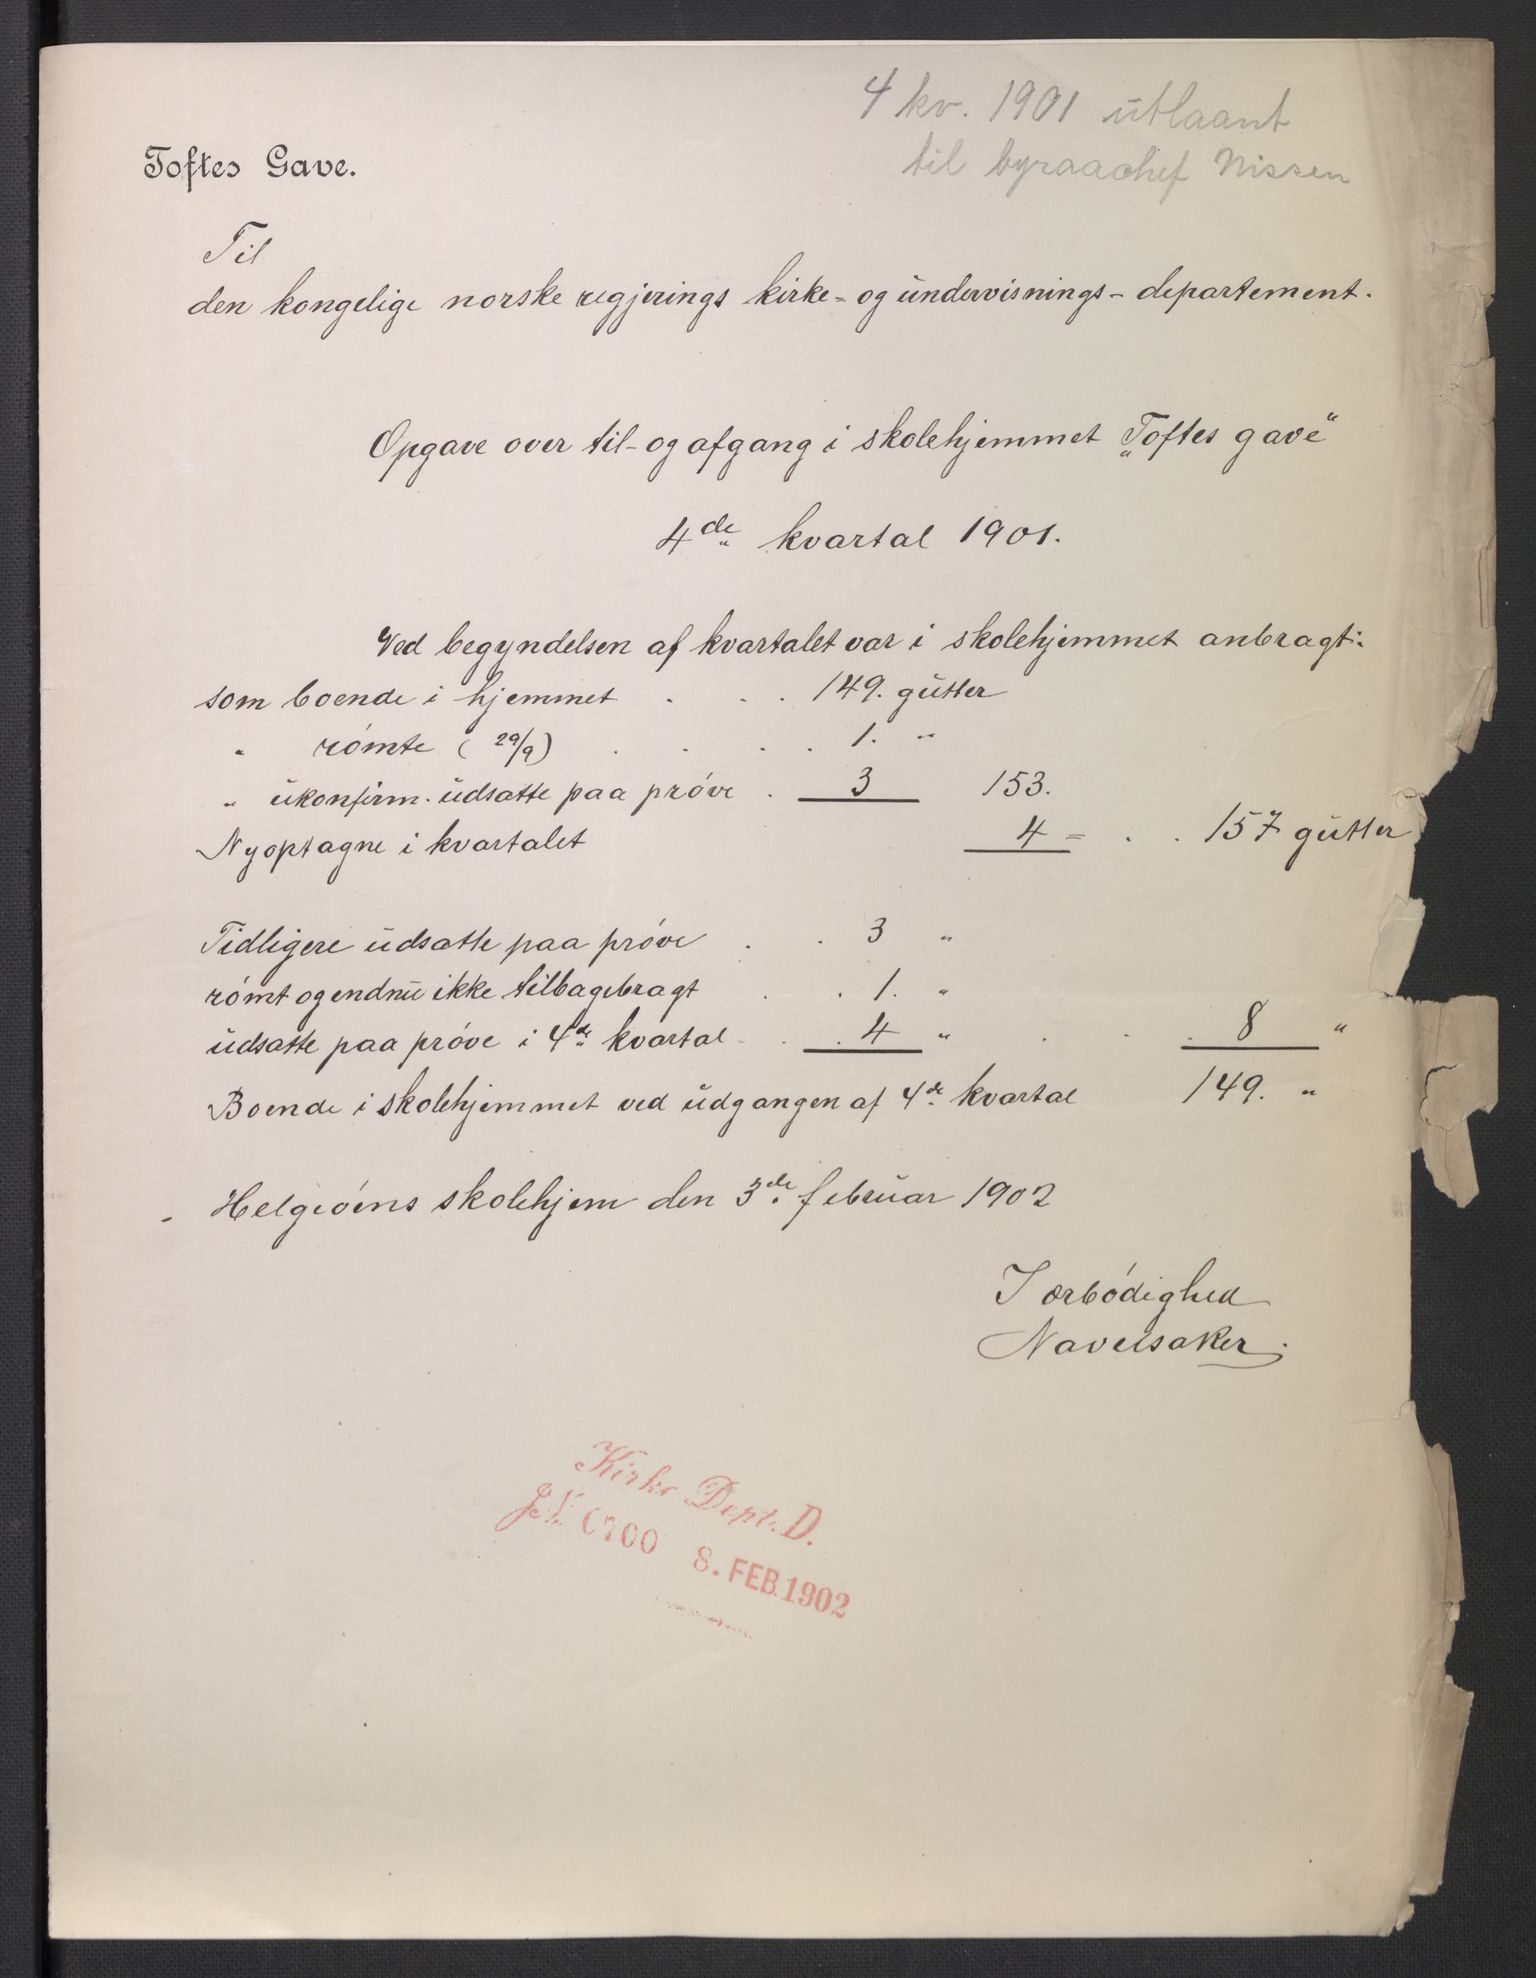 4 kv. 1901 utlaant
til byraachef Nissen
Toftes Gave.
Til
den kongelige norske regjerings kirke- og undervisnings- departement.
Opgave over til- og afgang i skolehjemmet „Toftes gave“
4de kvartal 1901.
Ved begyndelsen af kvartalet var i skolehjemmet anbragt:
som boende i hjemmet . . . 149. gutter
" rømte (29/9) . . . . 1. "
" ukonfirm. udsatte paa prøve . 3 153.
Nyoptagne i kvartalet 4 = . . 157 gutter
Tidligere udsatte paa prøve . . 3 "
rømt og endnu ikke tilbagebragt . . 1. "
udsatte paa prøve i 4de kvartal . . 4 " . . . 8 "
Boende i skolehjemmet ved udgangen af 4de kvartal 149. "
Helgeøens skolehjem den 3de februar 1902
I ærbødighed
Navelsaker.
Kirke Dept. D.
8. FEB. 1902